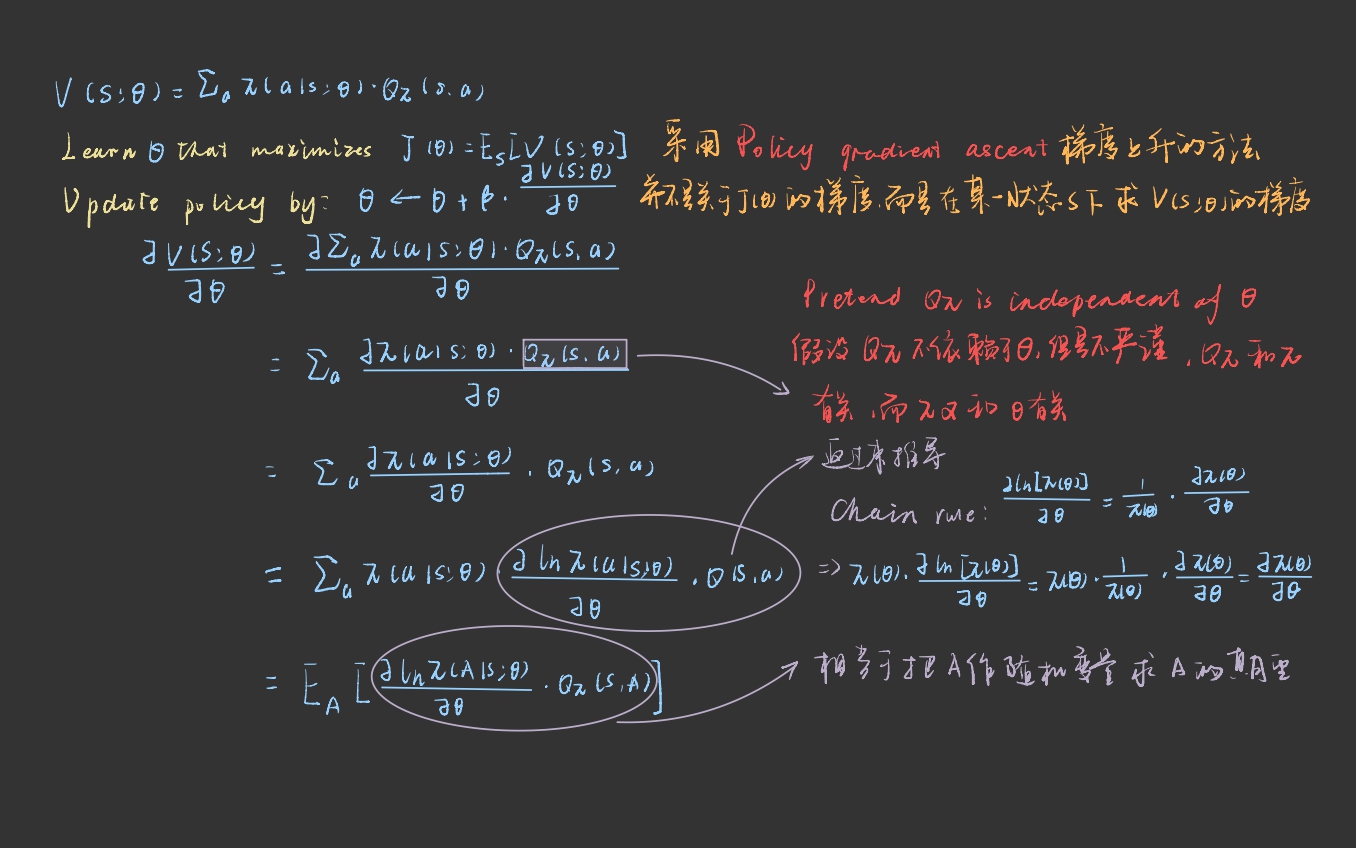 V(S;θ) = Σₐ π(a|s;θ)·Q_π(s,a)
Learn θ that maximizes J(θ) = E_S[V(S;θ)]
采用 Policy gradient ascent 梯度上升的方法
Update policy by: θ ← θ + β · ∂V(S;θ)/∂θ
并不是关于J(θ)的梯度,而是在某一个状态S下求V(S;θ)的梯度
∂V(S;θ)/∂θ = ∂Σₐ π(a|s;θ)·Q_π(s,a)/∂θ
Pretend Q_π is independent of θ
= Σₐ ∂π(a|s;θ)·Q_π(s,a)/∂θ
假设Q_π不依赖于θ,但是不严谨,Q_π和π
有关,而π又和θ有关
= Σₐ ∂π(a|s;θ)/∂θ · Q_π(s,a)
返过来推导
Chain rule: ∂ln[π(θ)]/∂θ = 1/π(θ) · ∂π(θ)/∂θ
= Σₐ π(a|s;θ) ∂ln π(a|s;θ)/∂θ · Q(s,a)
=> π(θ)·∂ln[π(θ)]/∂θ = π(θ)·1/π(θ)·∂π(θ)/∂θ = ∂π(θ)/∂θ
= E_A[∂ln π(A|s;θ)/∂θ · Q_π(s,A)]
相当于把A作随机变量求A的期望